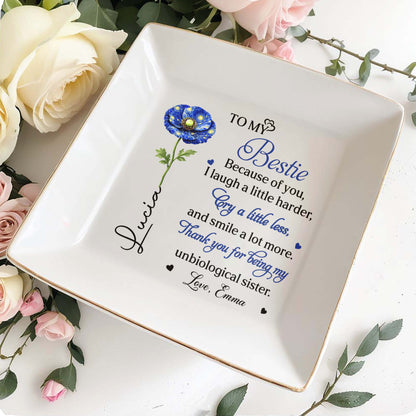 Lucia
TO MY
Bestie
Because of you,
I laugh a little harder,
Cry a little less,
and smile a lot more.
Thank you for being my
unbiological sister.
Love, Emma